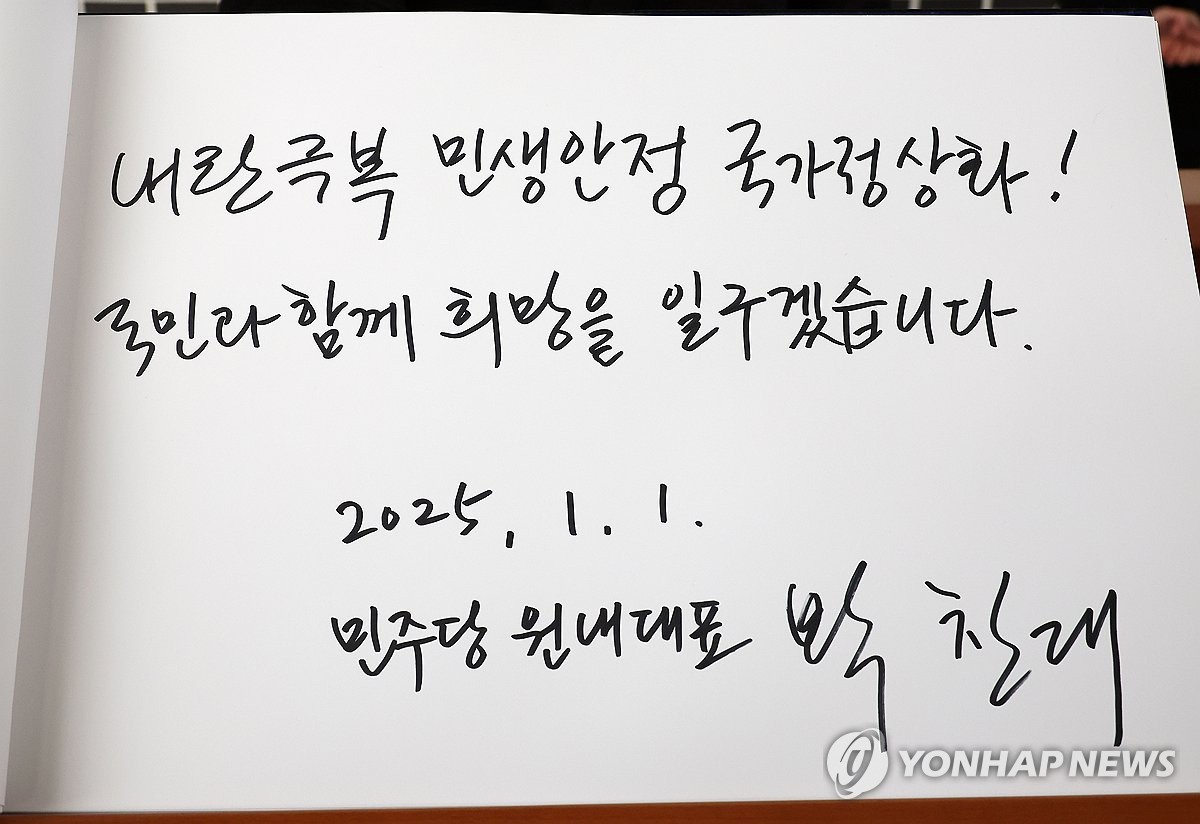 내란극복 민생안정 국가정상화!
국민과 함께 희망을 일구겠습니다.
2025, 1. 1.
민주당 원내대표 박찬대
YONHAP NEWS